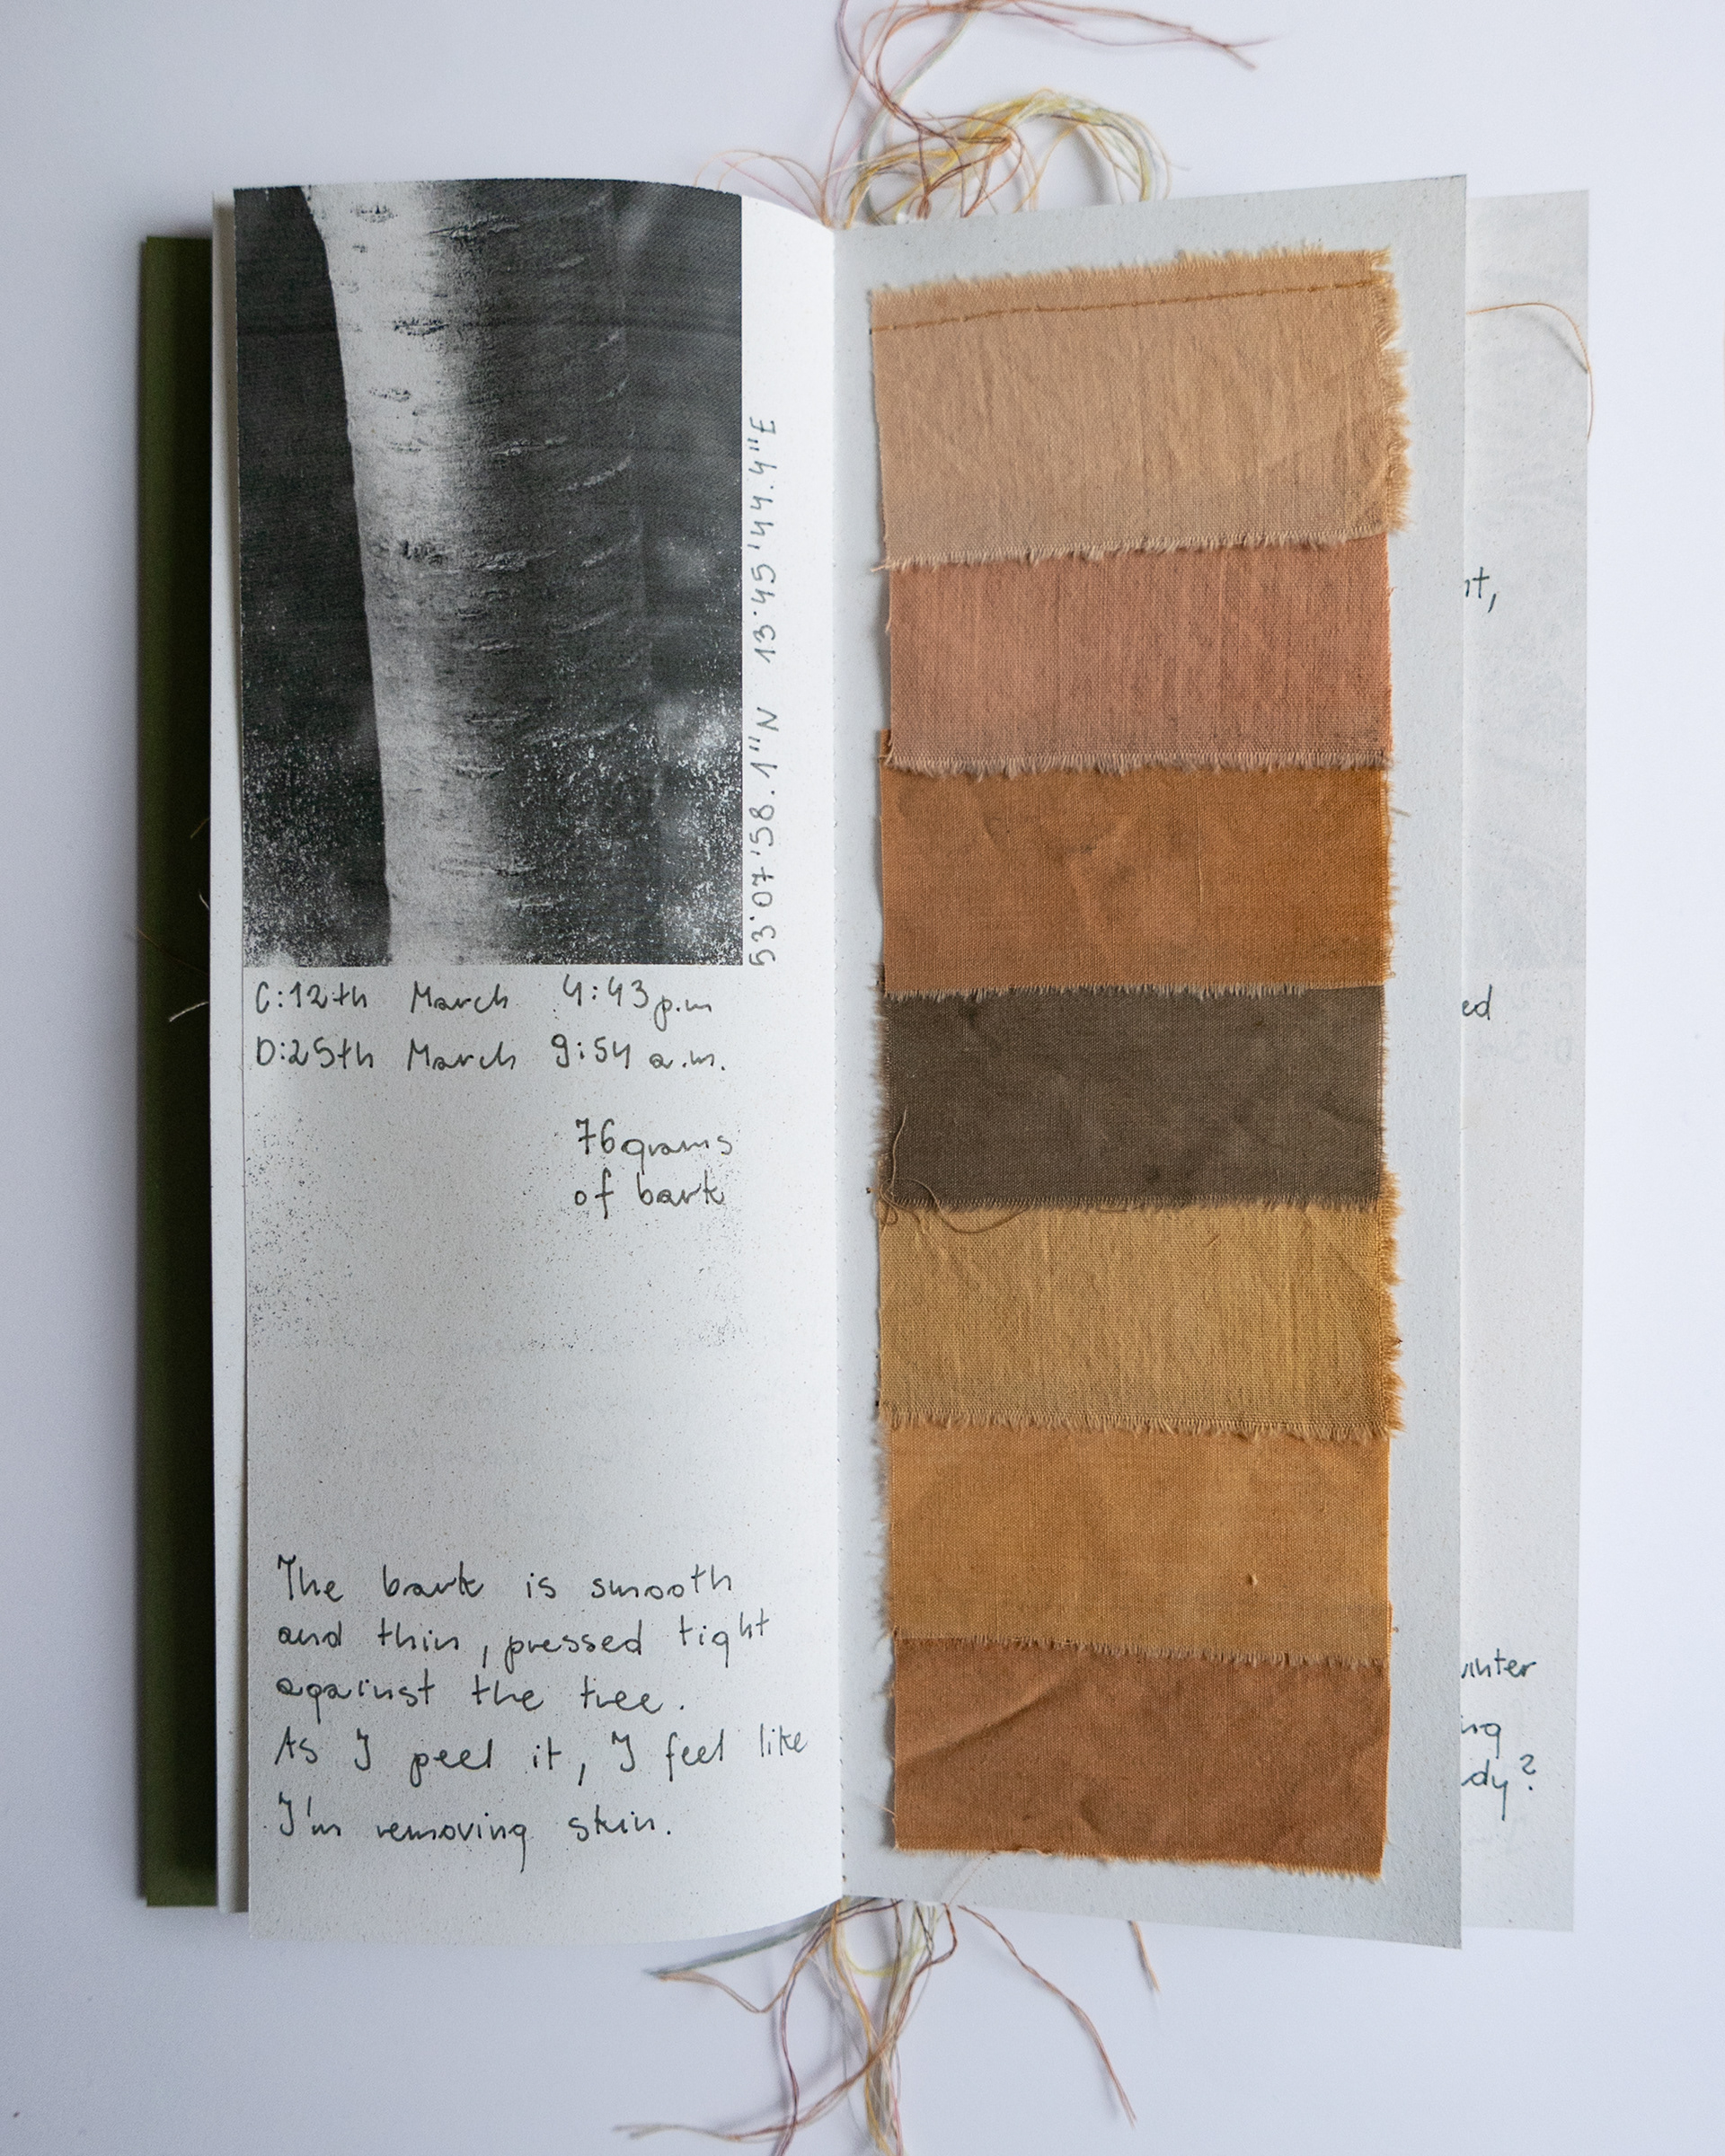 53.07'58.1"N 13.45'44.4"E
C:12th March 4:43p.m
D:25th March 9:54 a.m.
76grams
of bark
The bark is smooth
and thin, pressed tight
against the tree.
As I peel it, I feel like
I'm removing skin.
ed
dy?